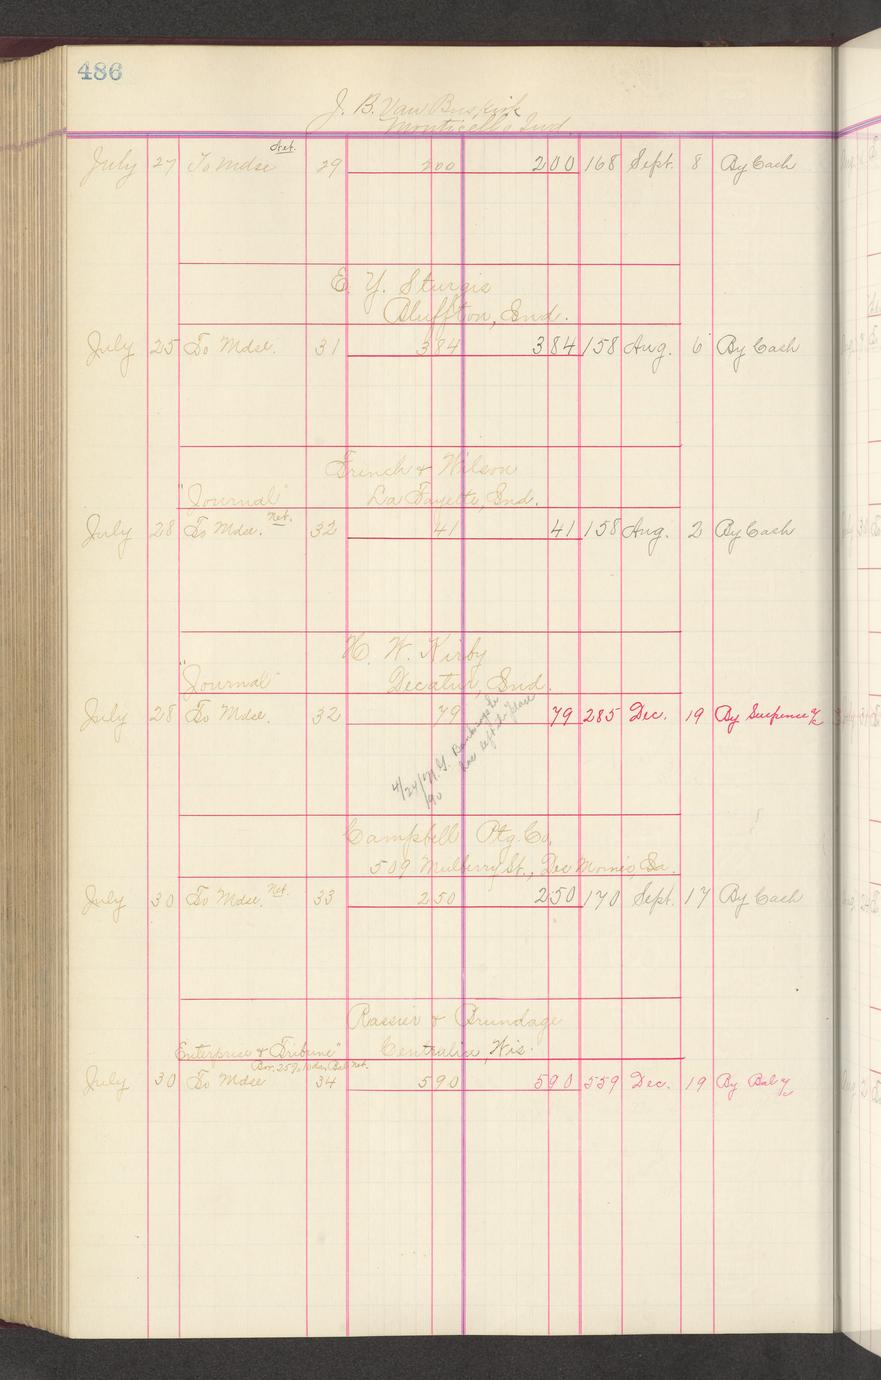 486
J. B. Van Buskirk
Monticello Ind.
July 27 To Mdse net. 29 200 200 168 Sept. 8 By Cash
E. Y. Sturgis
Bluffton, Ind.
July 25 To Mdse. 31 384 384 158 Aug. 6 By Cash
French & Wilson
"Journal" La Fayette, Ind.
July 28 To Mdse. Net. 32 41 41 158 Aug. 2 By Cash
H. W. Kirby
"Journal" Decatur, Ind.
July 28 To Mdse. 32 79 79 285 Dec. 19 By Suspense a/c
4/24/90
has left the place
Campbell Ptg. Co.
509 Mulberry St., Des Moines Ia.
July 30 To Mdse. Net. 33 250 250 170 Sept. 17 By Cash
Rassier & Brundage
Enterprise & Tribune" Centralia, Wis.
July 30 To Mdse 34 590 590 559 Dec. 19 By Bal